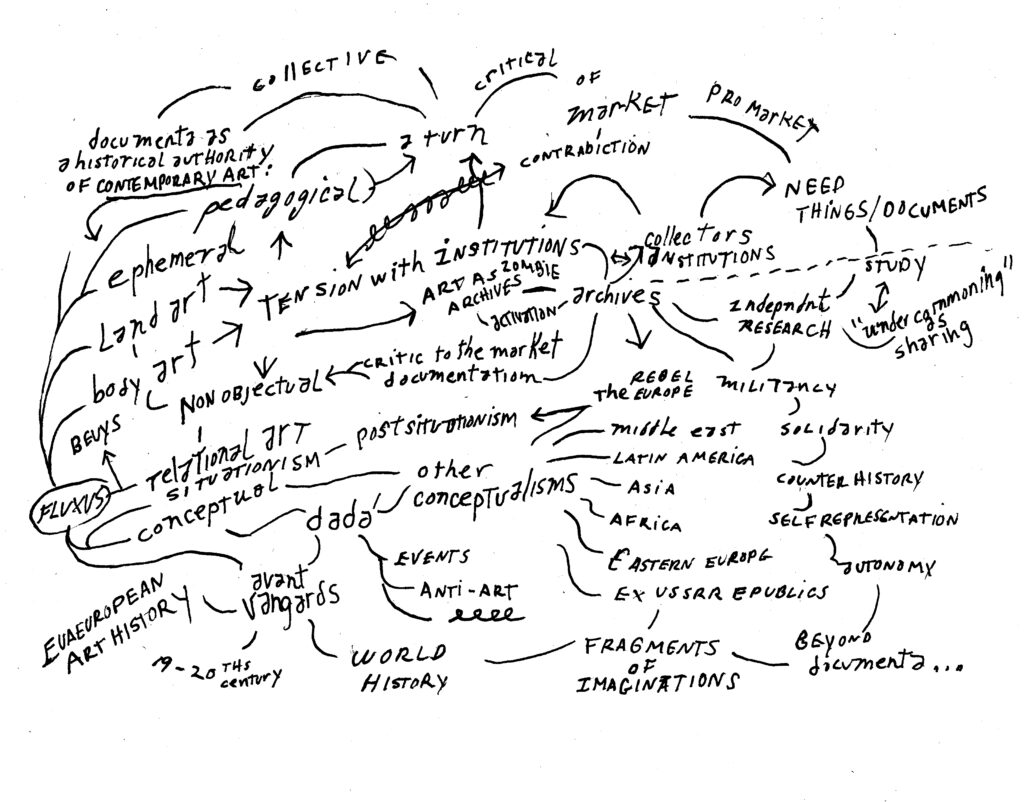 collective
critical
of
market
pro market
documenta as
a historical authority
of contemporary art:
a turn
contradiction
pedagogical
need
things/documents
ephemeral
tension with institutions
collectors
institutions
study
land art
art as zombie
archives
activation
archives
indepndnt
research
"undercommoning"
as
sharing
body art
non objectual
critic to the market
documentation
rebel
the europe
militancy
Beuys
relational art
situationism
postsituationism
middle east
solidarity
Latin America
Fluxus
conceptual
other
conceptualisms
Asia
counter history
dada
Africa
self representation
events
Eastern Europe
autonomy
avant
vangards
anti-art
ex USSRR epublics
Euaeuropean
art history
19-20ths
century
world
history
fragments
of
imaginations
beyond
documenta...